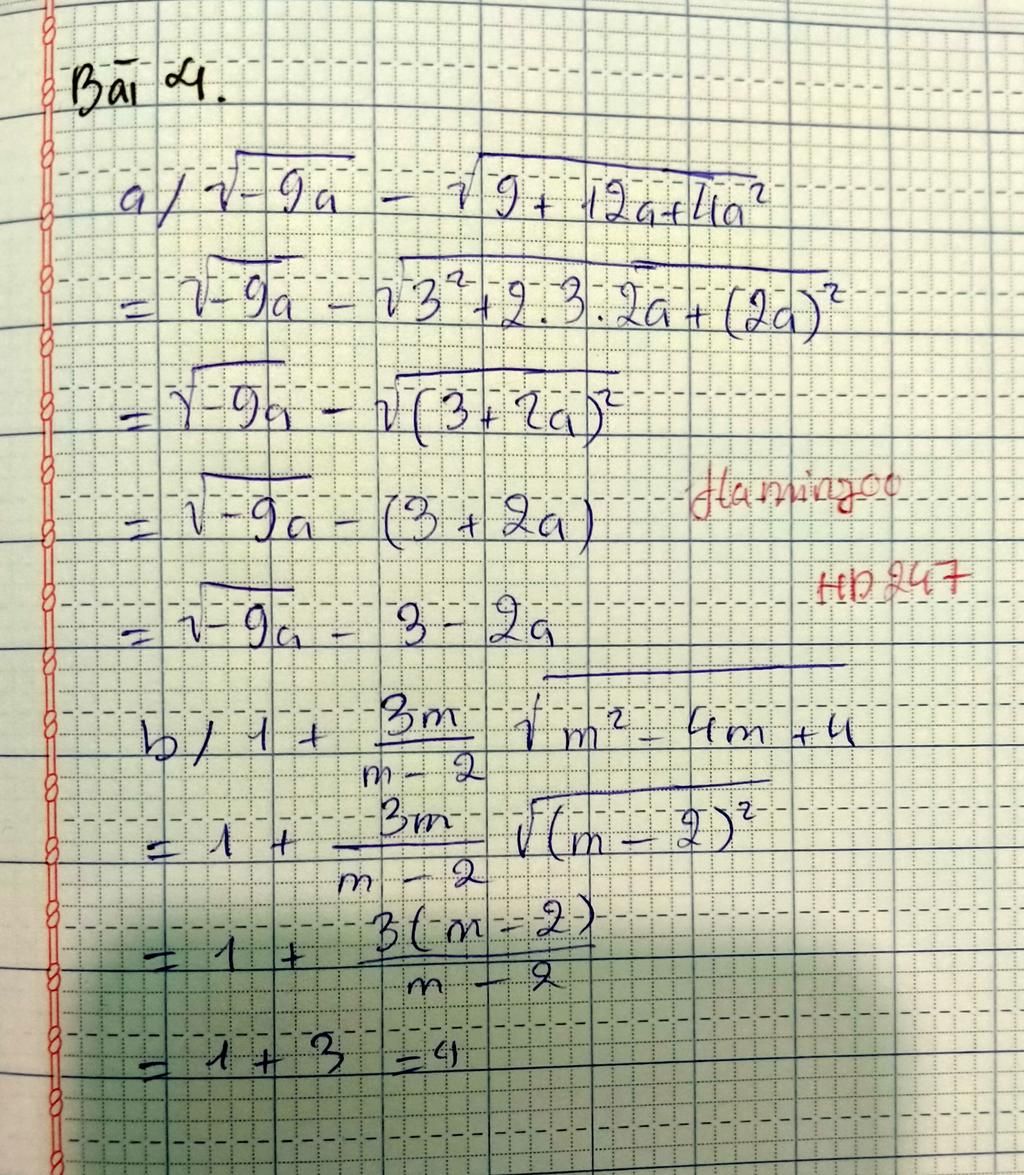 Bài 4.
a/ √-9a - √9 + 12a + 4a²
= √-9a - √3² + 2.3.2a + (2a)²
= √-9a - √(3 + 2a)²
= √-9a - (3 + 2a)
flamingoo
HD247
= √-9a - 3 - 2a
b/ 1 + 3m/m - 2 √m² - 4m + 4
= 1 + 3m/m - 2 √(m - 2)²
= 1 + 3(m - 2)/m - 2
= 1 + 3 = 4